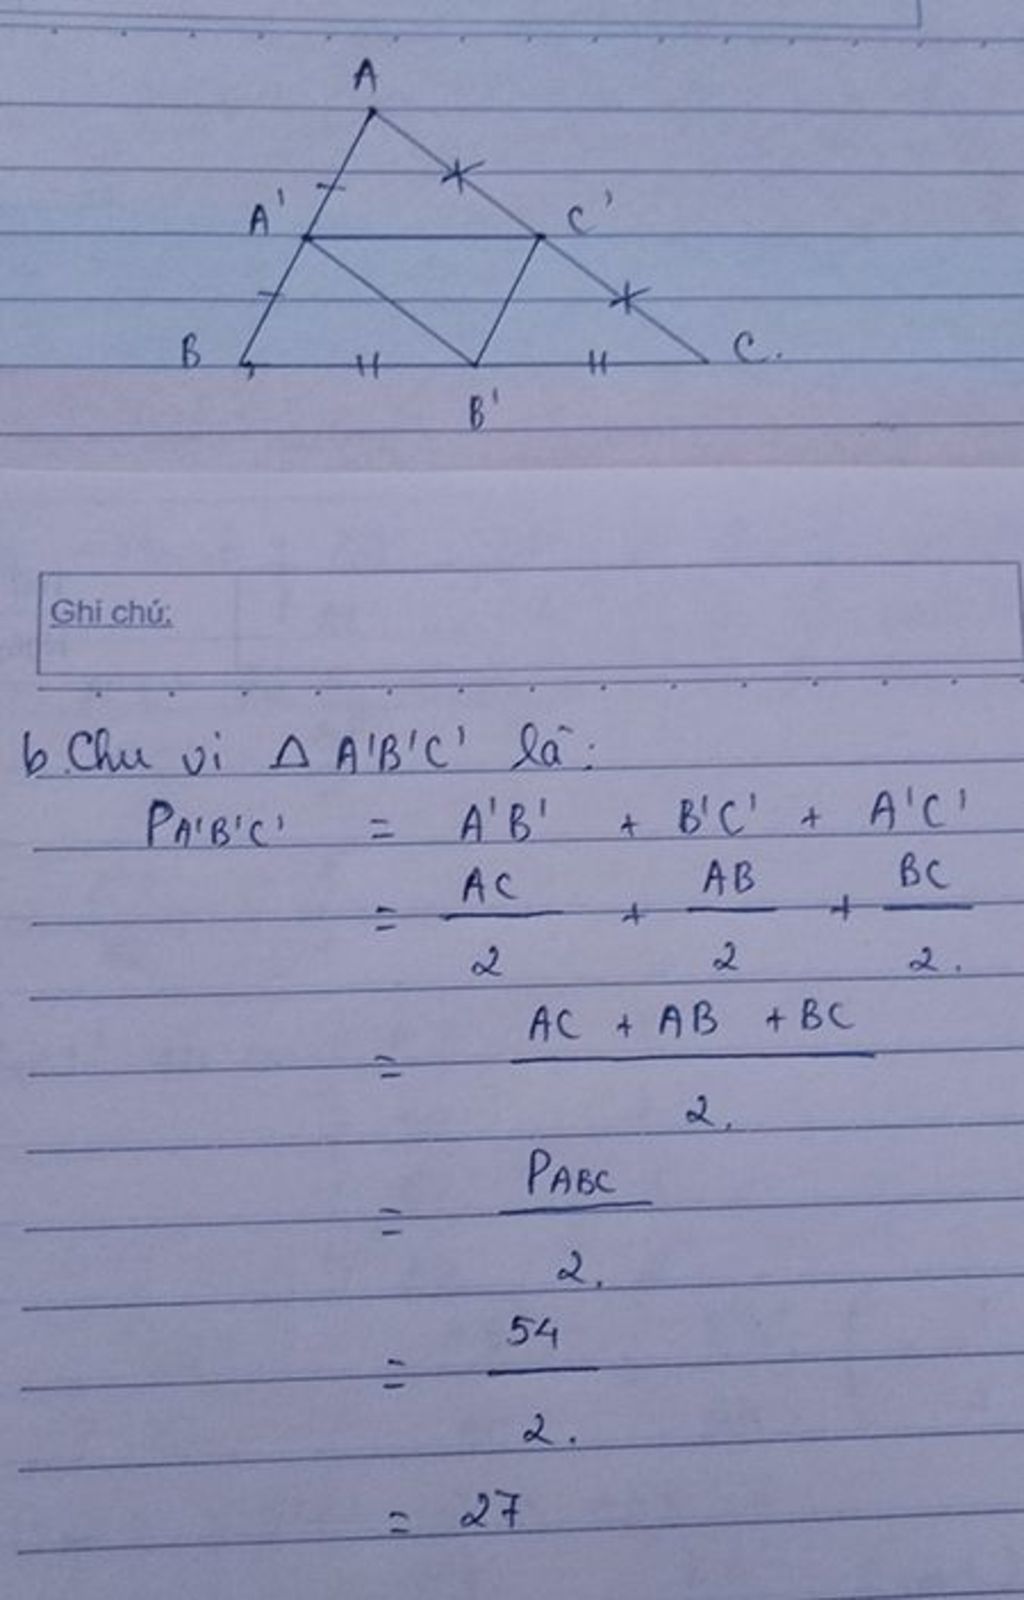 A
A'
C'
B
C.
B'
Ghi chú:
b. Chu vi Δ A'B'C' là:
PA'B'C' = A'B' + B'C' + A'C'
= AC/2 + AB/2 + BC/2.
= AC + AB + BC / 2.
= PABC / 2.
= 54 / 2.
= 27